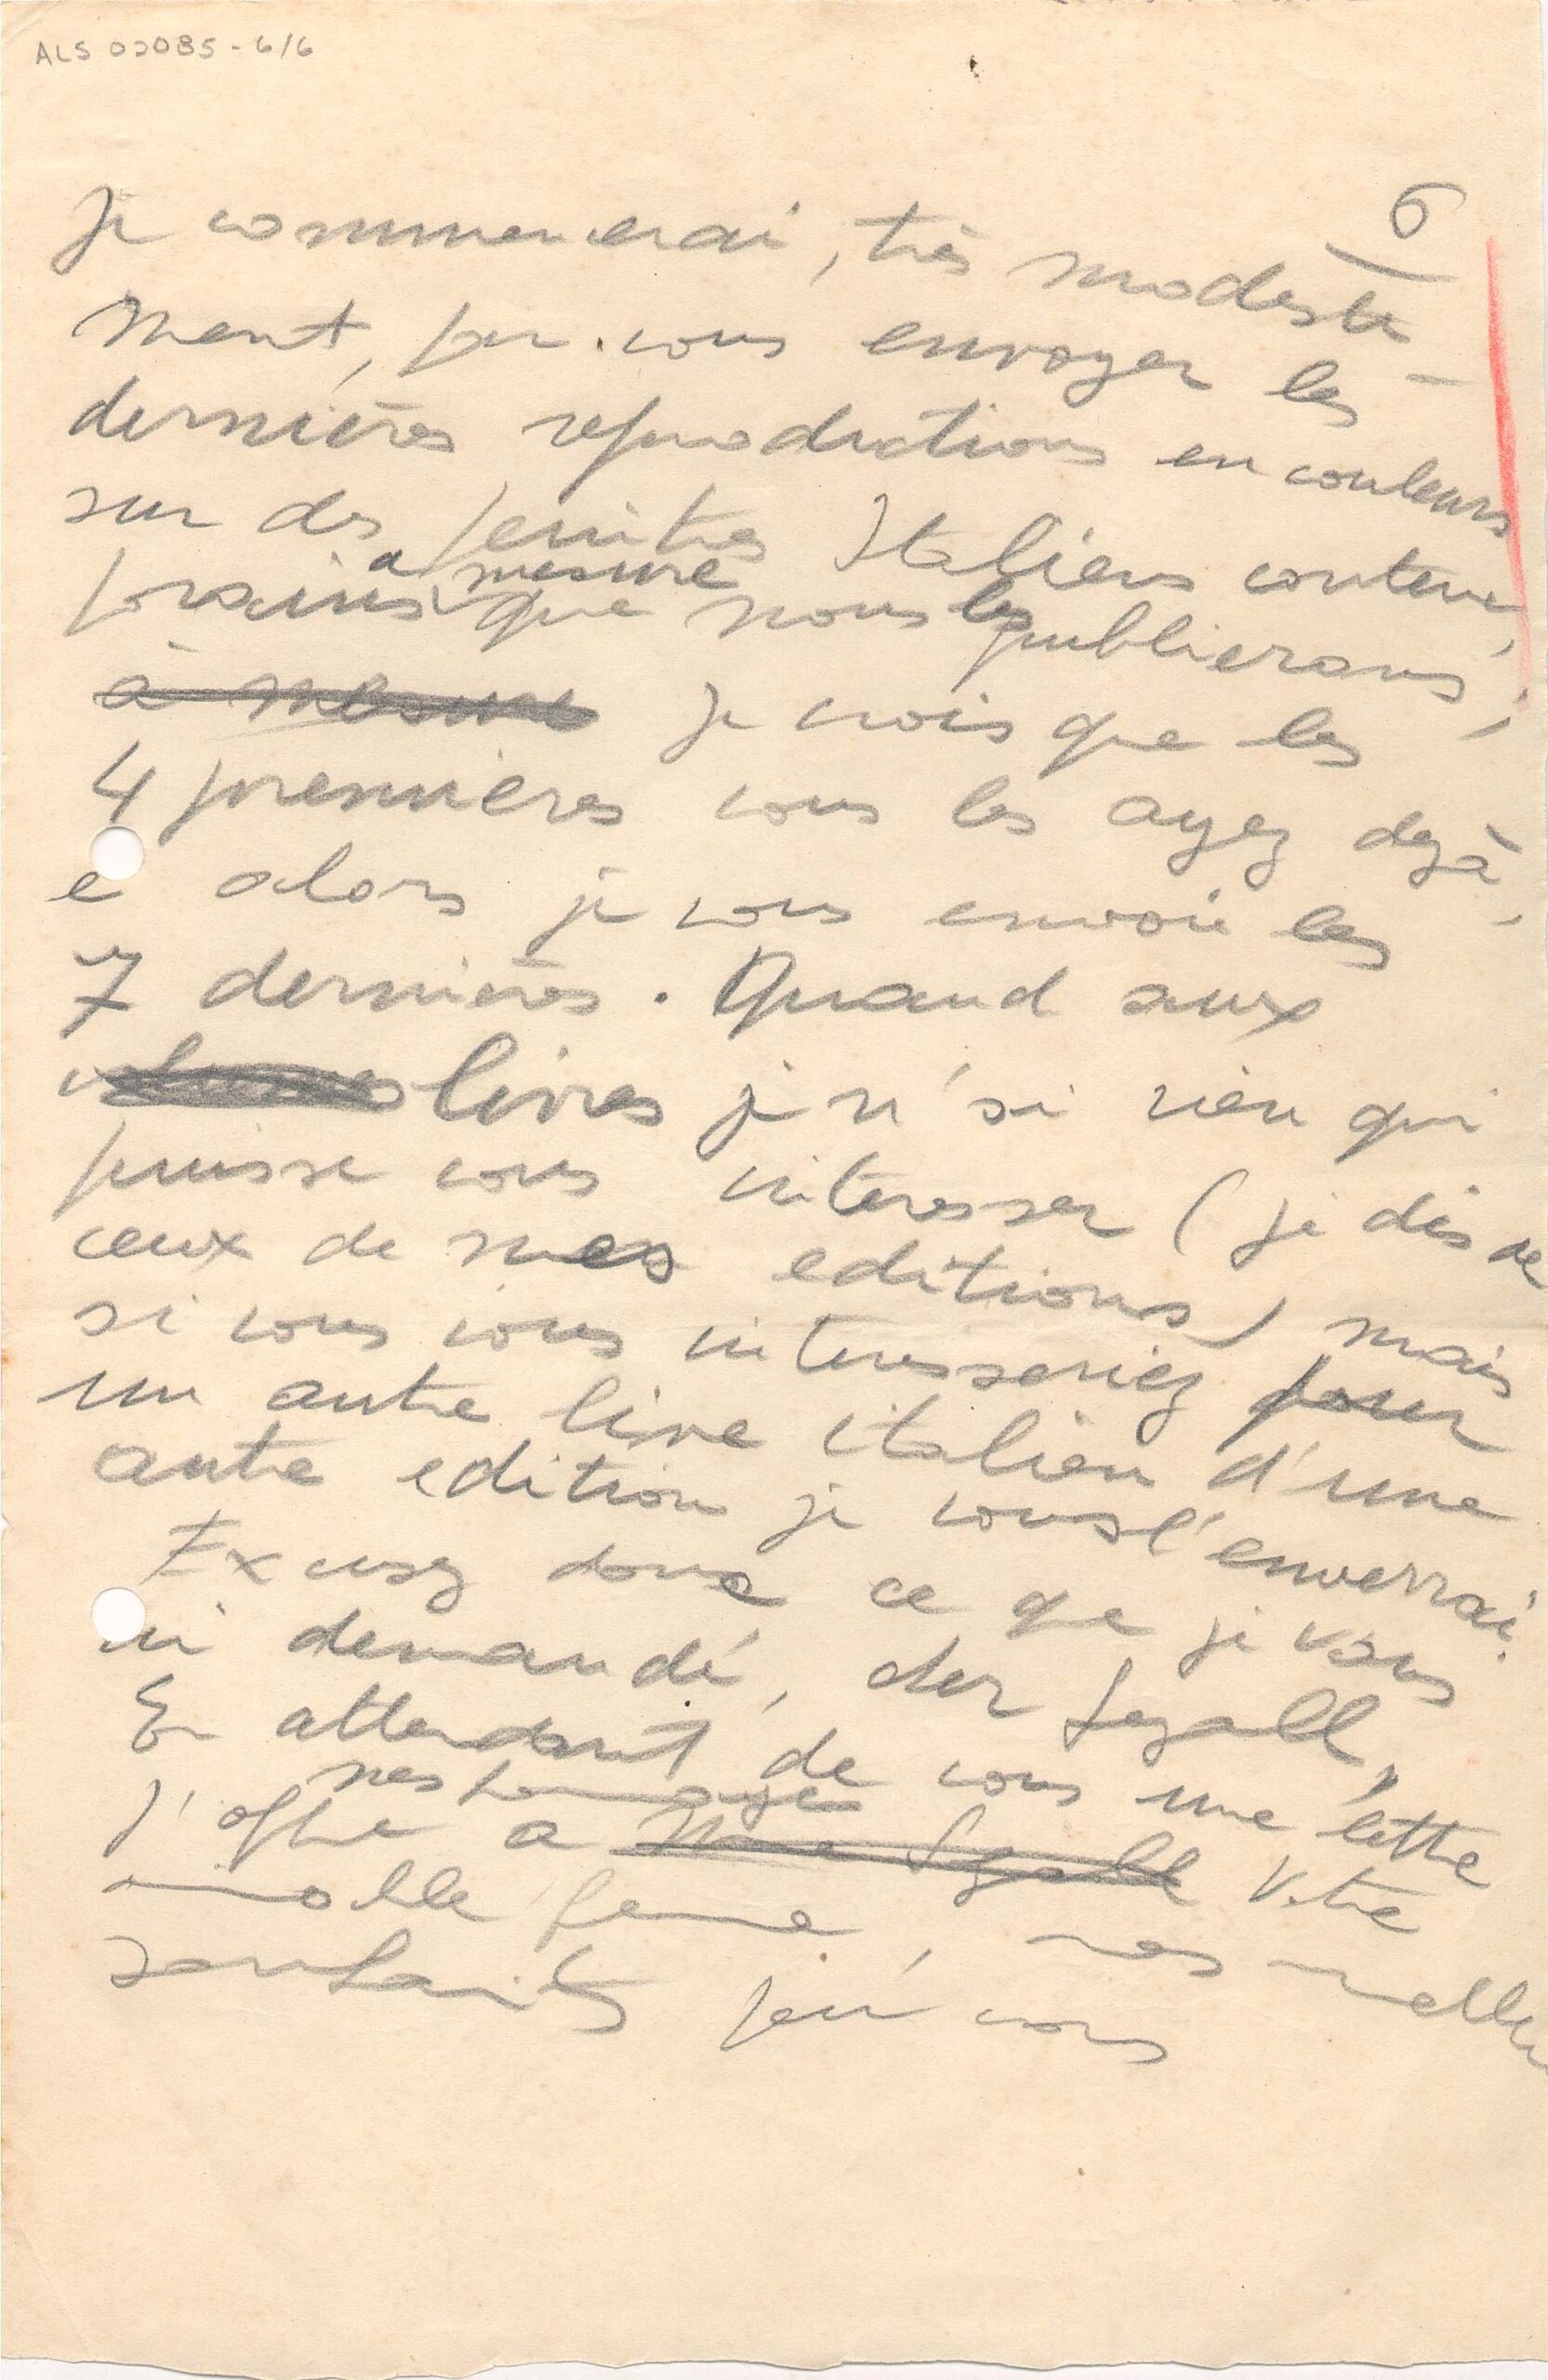 ALS 02085-6/6
6
Je commencerai, très modeste-
ment, par vous envoyer les
dernières reproductions en couleurs
sur des peintres Italiens contem
a mesure
porains que nous les publierons,
à mesure je crois que les
4 premieres vous les ayez dejà,
e alors je vous envoie les
7 dernières. Quand aux
volumes livres je n'ai rien qui
puisse vous interesser (je dis de
ceux de mes editions) mais
si vous vous interesseriez pour
un autre livre italien d'une
autre edition je vous l'enverrai.
Excusez donc ce que je vous
ai demandé, cher Segall,
En attendant de vous une lettre
mes hommages
j'offre a Mme Segall Votre
aimable femme, mes meilleurs
souhaits pour vous